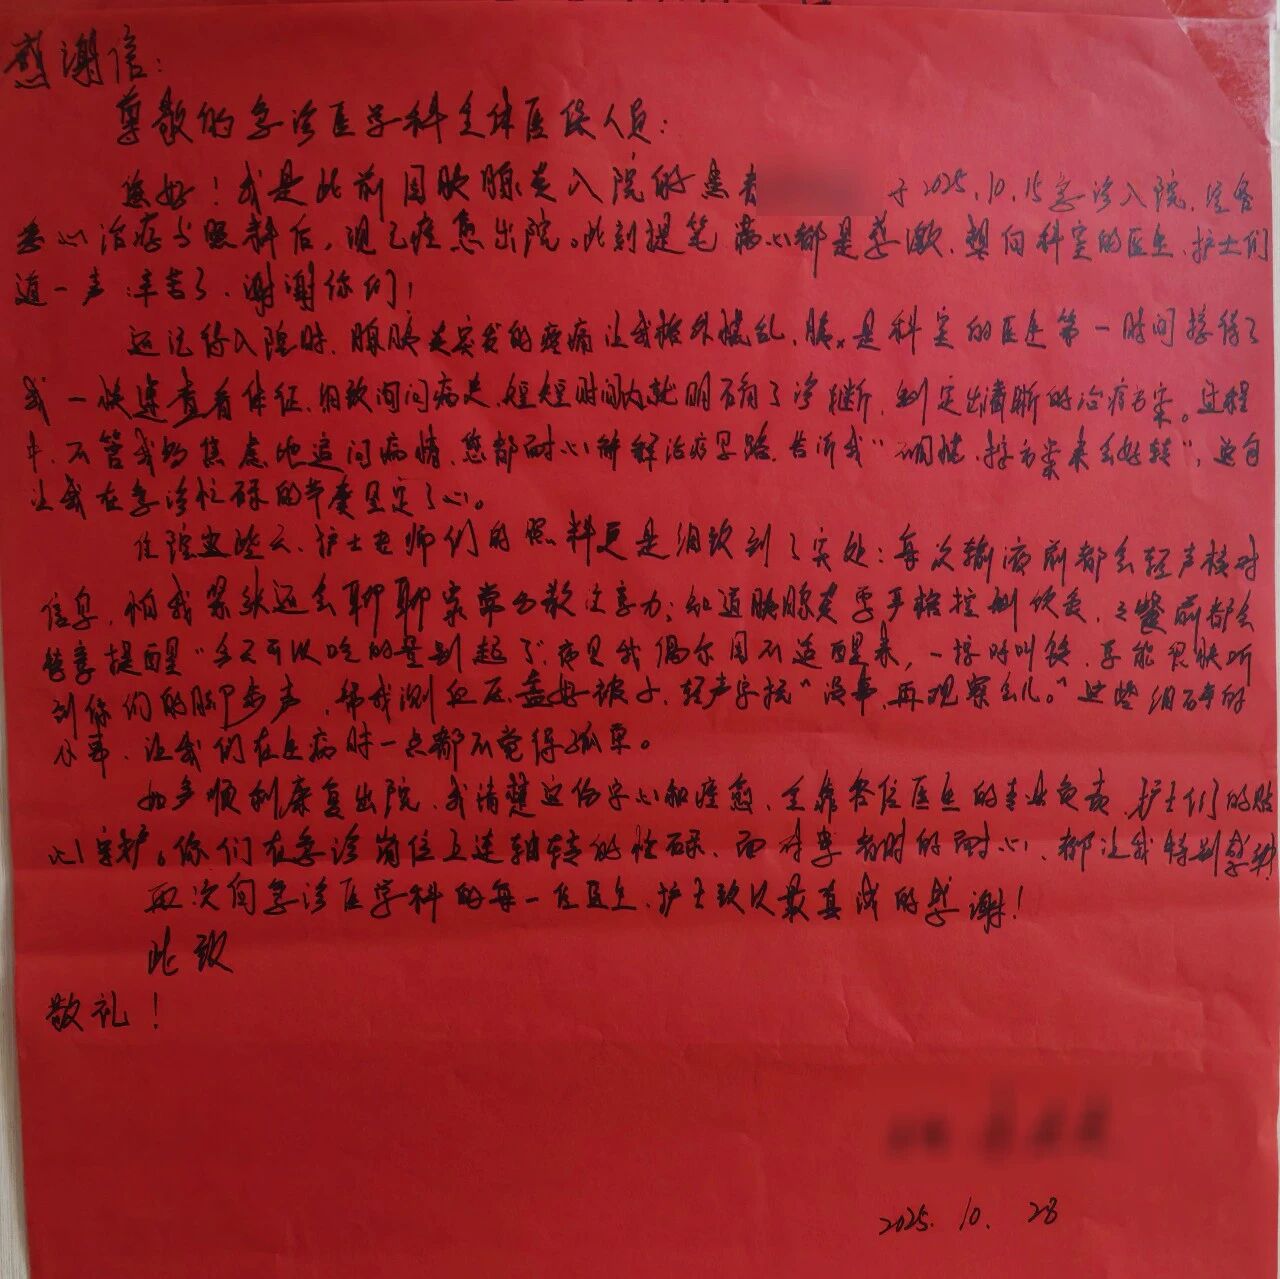 感谢信：
尊敬的急诊医学科全体医保人员：
您好！我是此前因胰腺炎入院的患者 于2025.10.15急诊入院，经各
心治疗与照料后，现已痊愈出院。此刻提笔 满心都是感激、想向科室的医生、护士们
道一声：辛苦了、谢谢你们！
还记得入院时、腺胰炎突发的疼痛让我格外慌乱、是科室的医生第一时间接待了
我 一快速查看体征、细致询问病史、短短时间内就明确了诊断、制定出清晰的治疗方案。过程
中、不管我多焦虑地追问病情、您都耐心讲解治疗思路、告诉我“别慌、按方案来会好转”，这句
让我在急诊忙碌的节奏里定了心。
住院这些天、护士老师们的照料更是细致到了实处：每次输液前都会轻声核对
信息、怕我紧张还会聊聊家常分散注意力；知道胰腺炎要严格控制饮食、之餐前都会
特意提醒“今天可以吃的量别超了”、夜里我偶尔因不适醒来，一按呼叫铃、总能很快听
到你们的脚步声、帮我测血压、盖好被子、轻声安抚“没事、再观察会儿。”这些细碎的
小事、让我们在生病时一点都不觉得孤单。
如今顺利康复出院、我清楚这份安心和痊愈、全靠各位医生的专业负责、护士们的贴
心守护。你们在急诊岗位上连轴转的忙碌、面对患者时的耐心、都让我特别感动
再次向急诊医学科的每一位医生、护士致以最真诚的感谢！
此致
敬礼！
2025. 10. 28